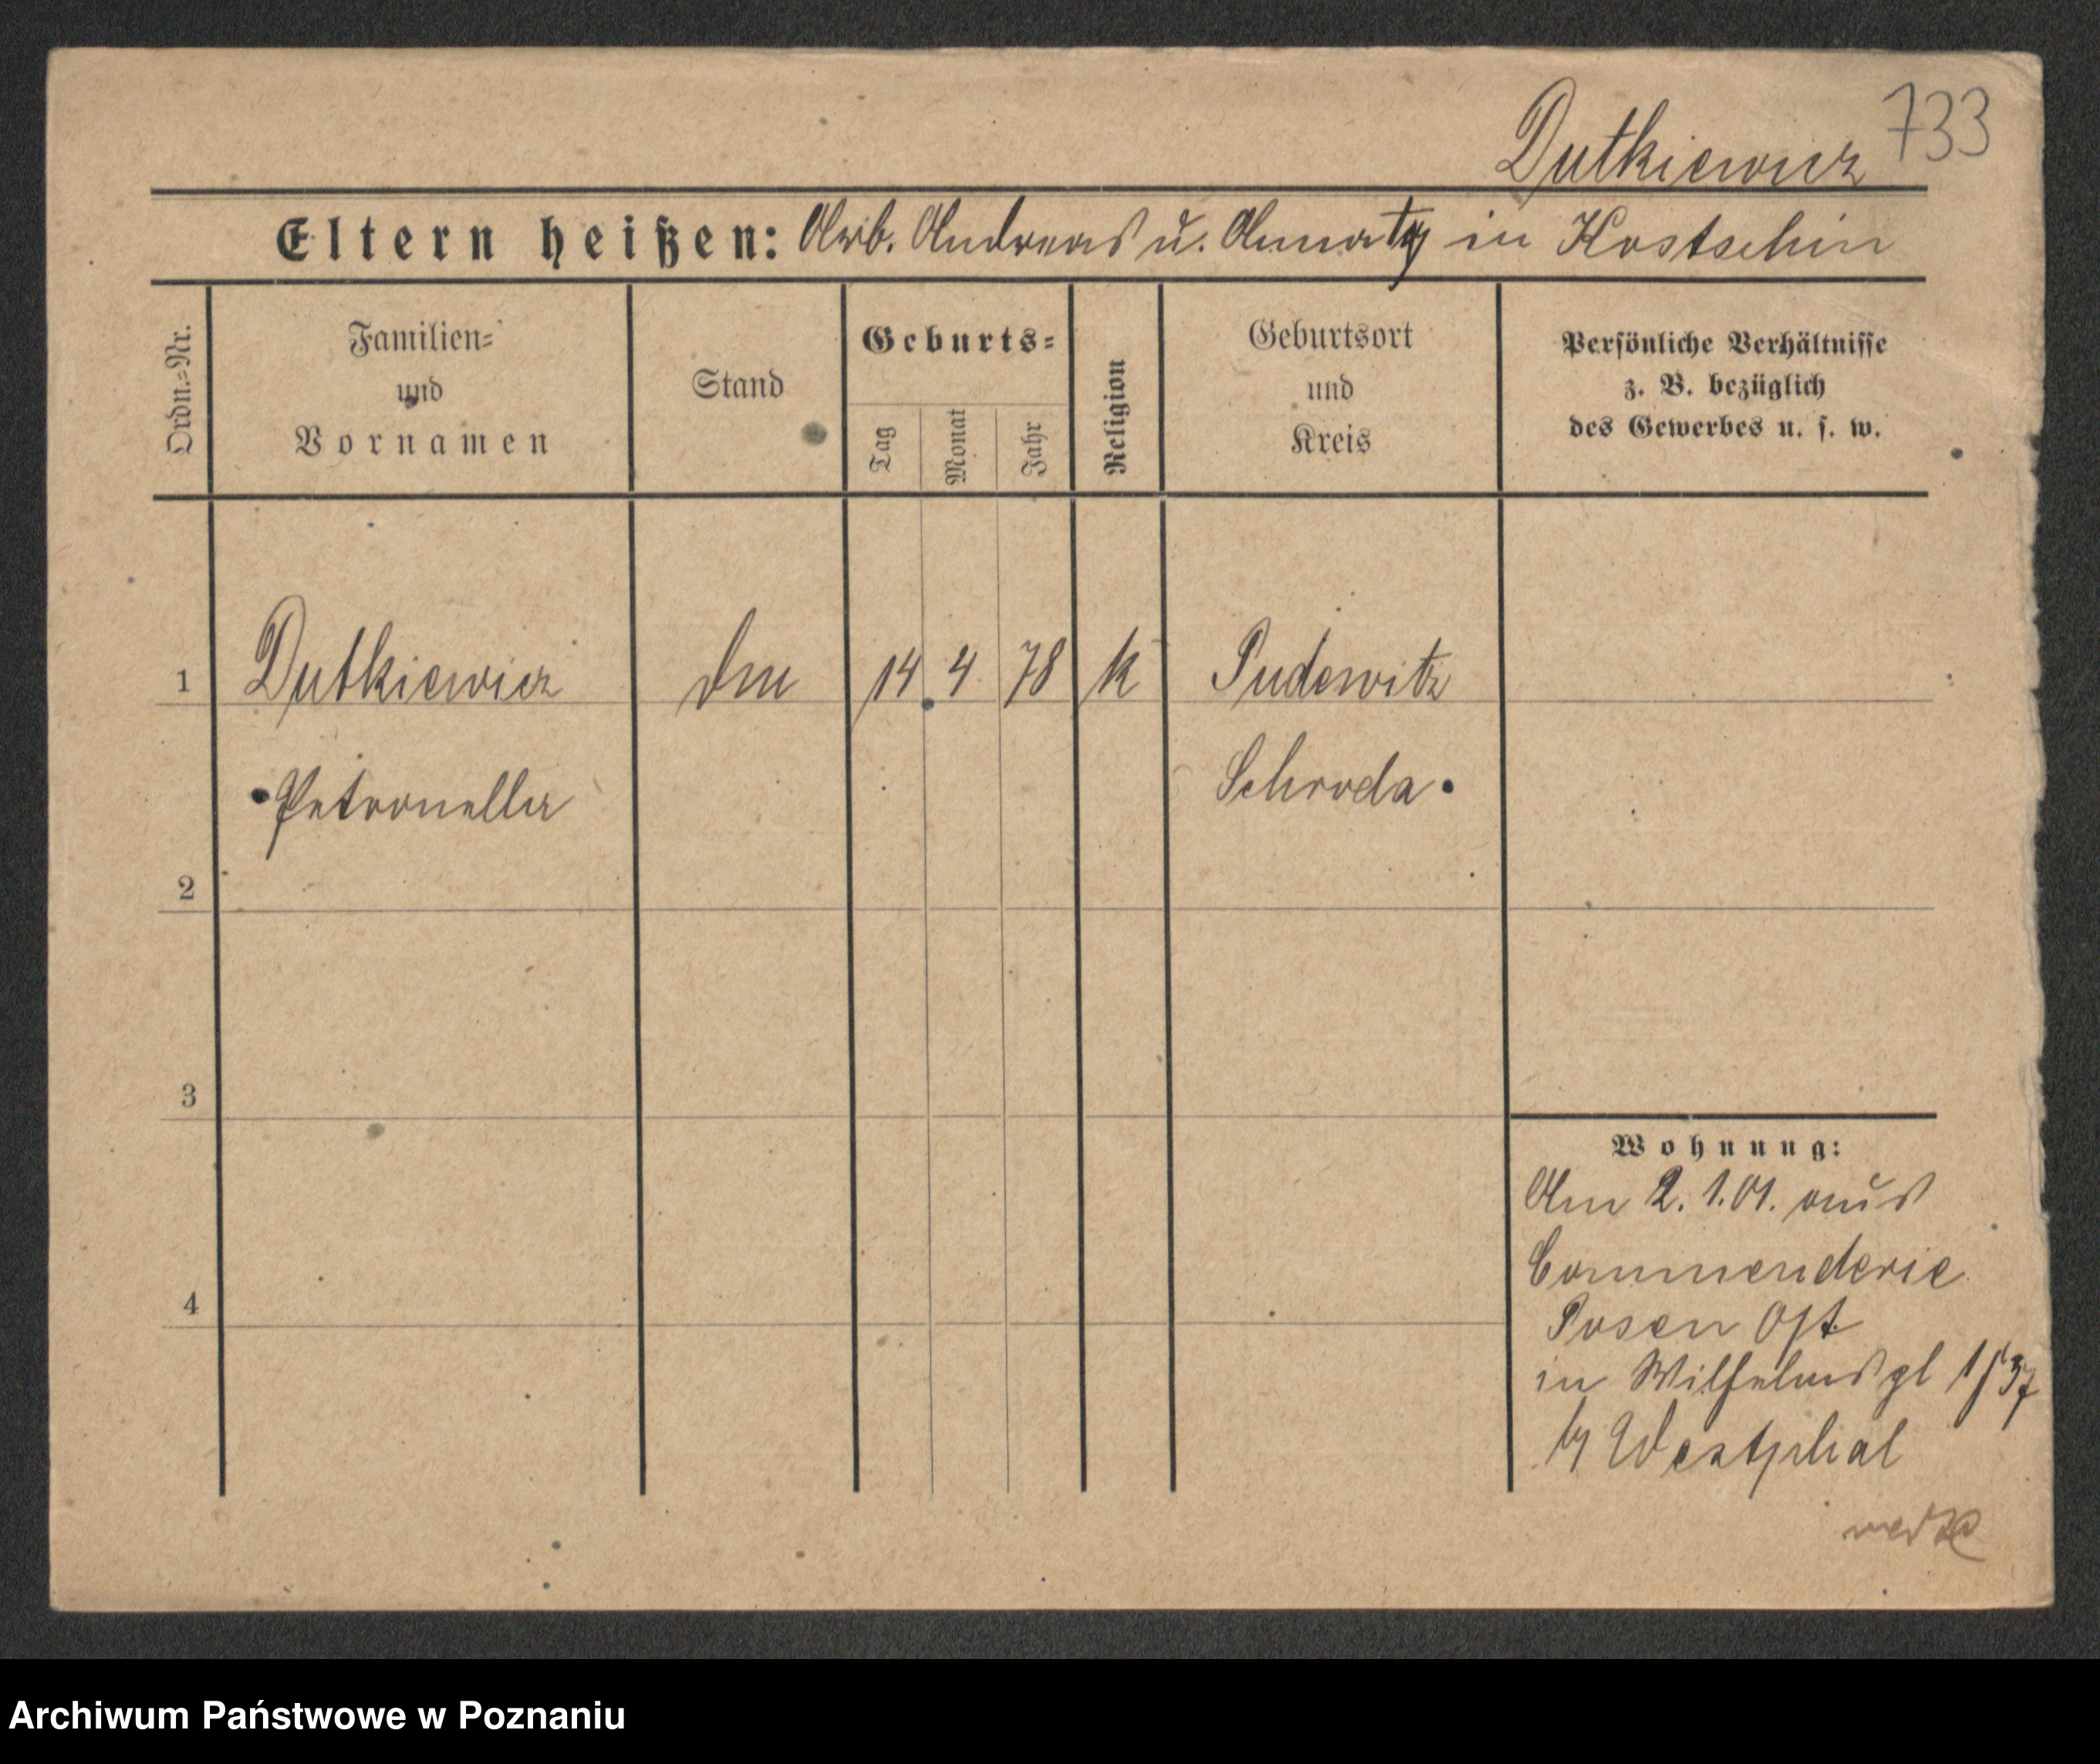 733
Dutkiewicz
Eltern heißen: Arb. Andreas u. Anna in Kostschin
Ordn.-Nr.
Familien-
und
Vornamen
Stand
Geburts-
Tag
Monat
Jahr
Religion
Geburtsort
und
Kreis
Persönliche Verhältnisse
z. B. bezüglich
des Gewerbes u. s. w.
1 Dutkiewicz 14 4 78 k Pudewitz
Petronella Schroda
2
3
4
Wohnung:
Am 2. 1. 01. aus
Commenderie
Posen Ost
in Wilhelmspl 1/
Westphal
Archiwum Państwowe w Poznaniu